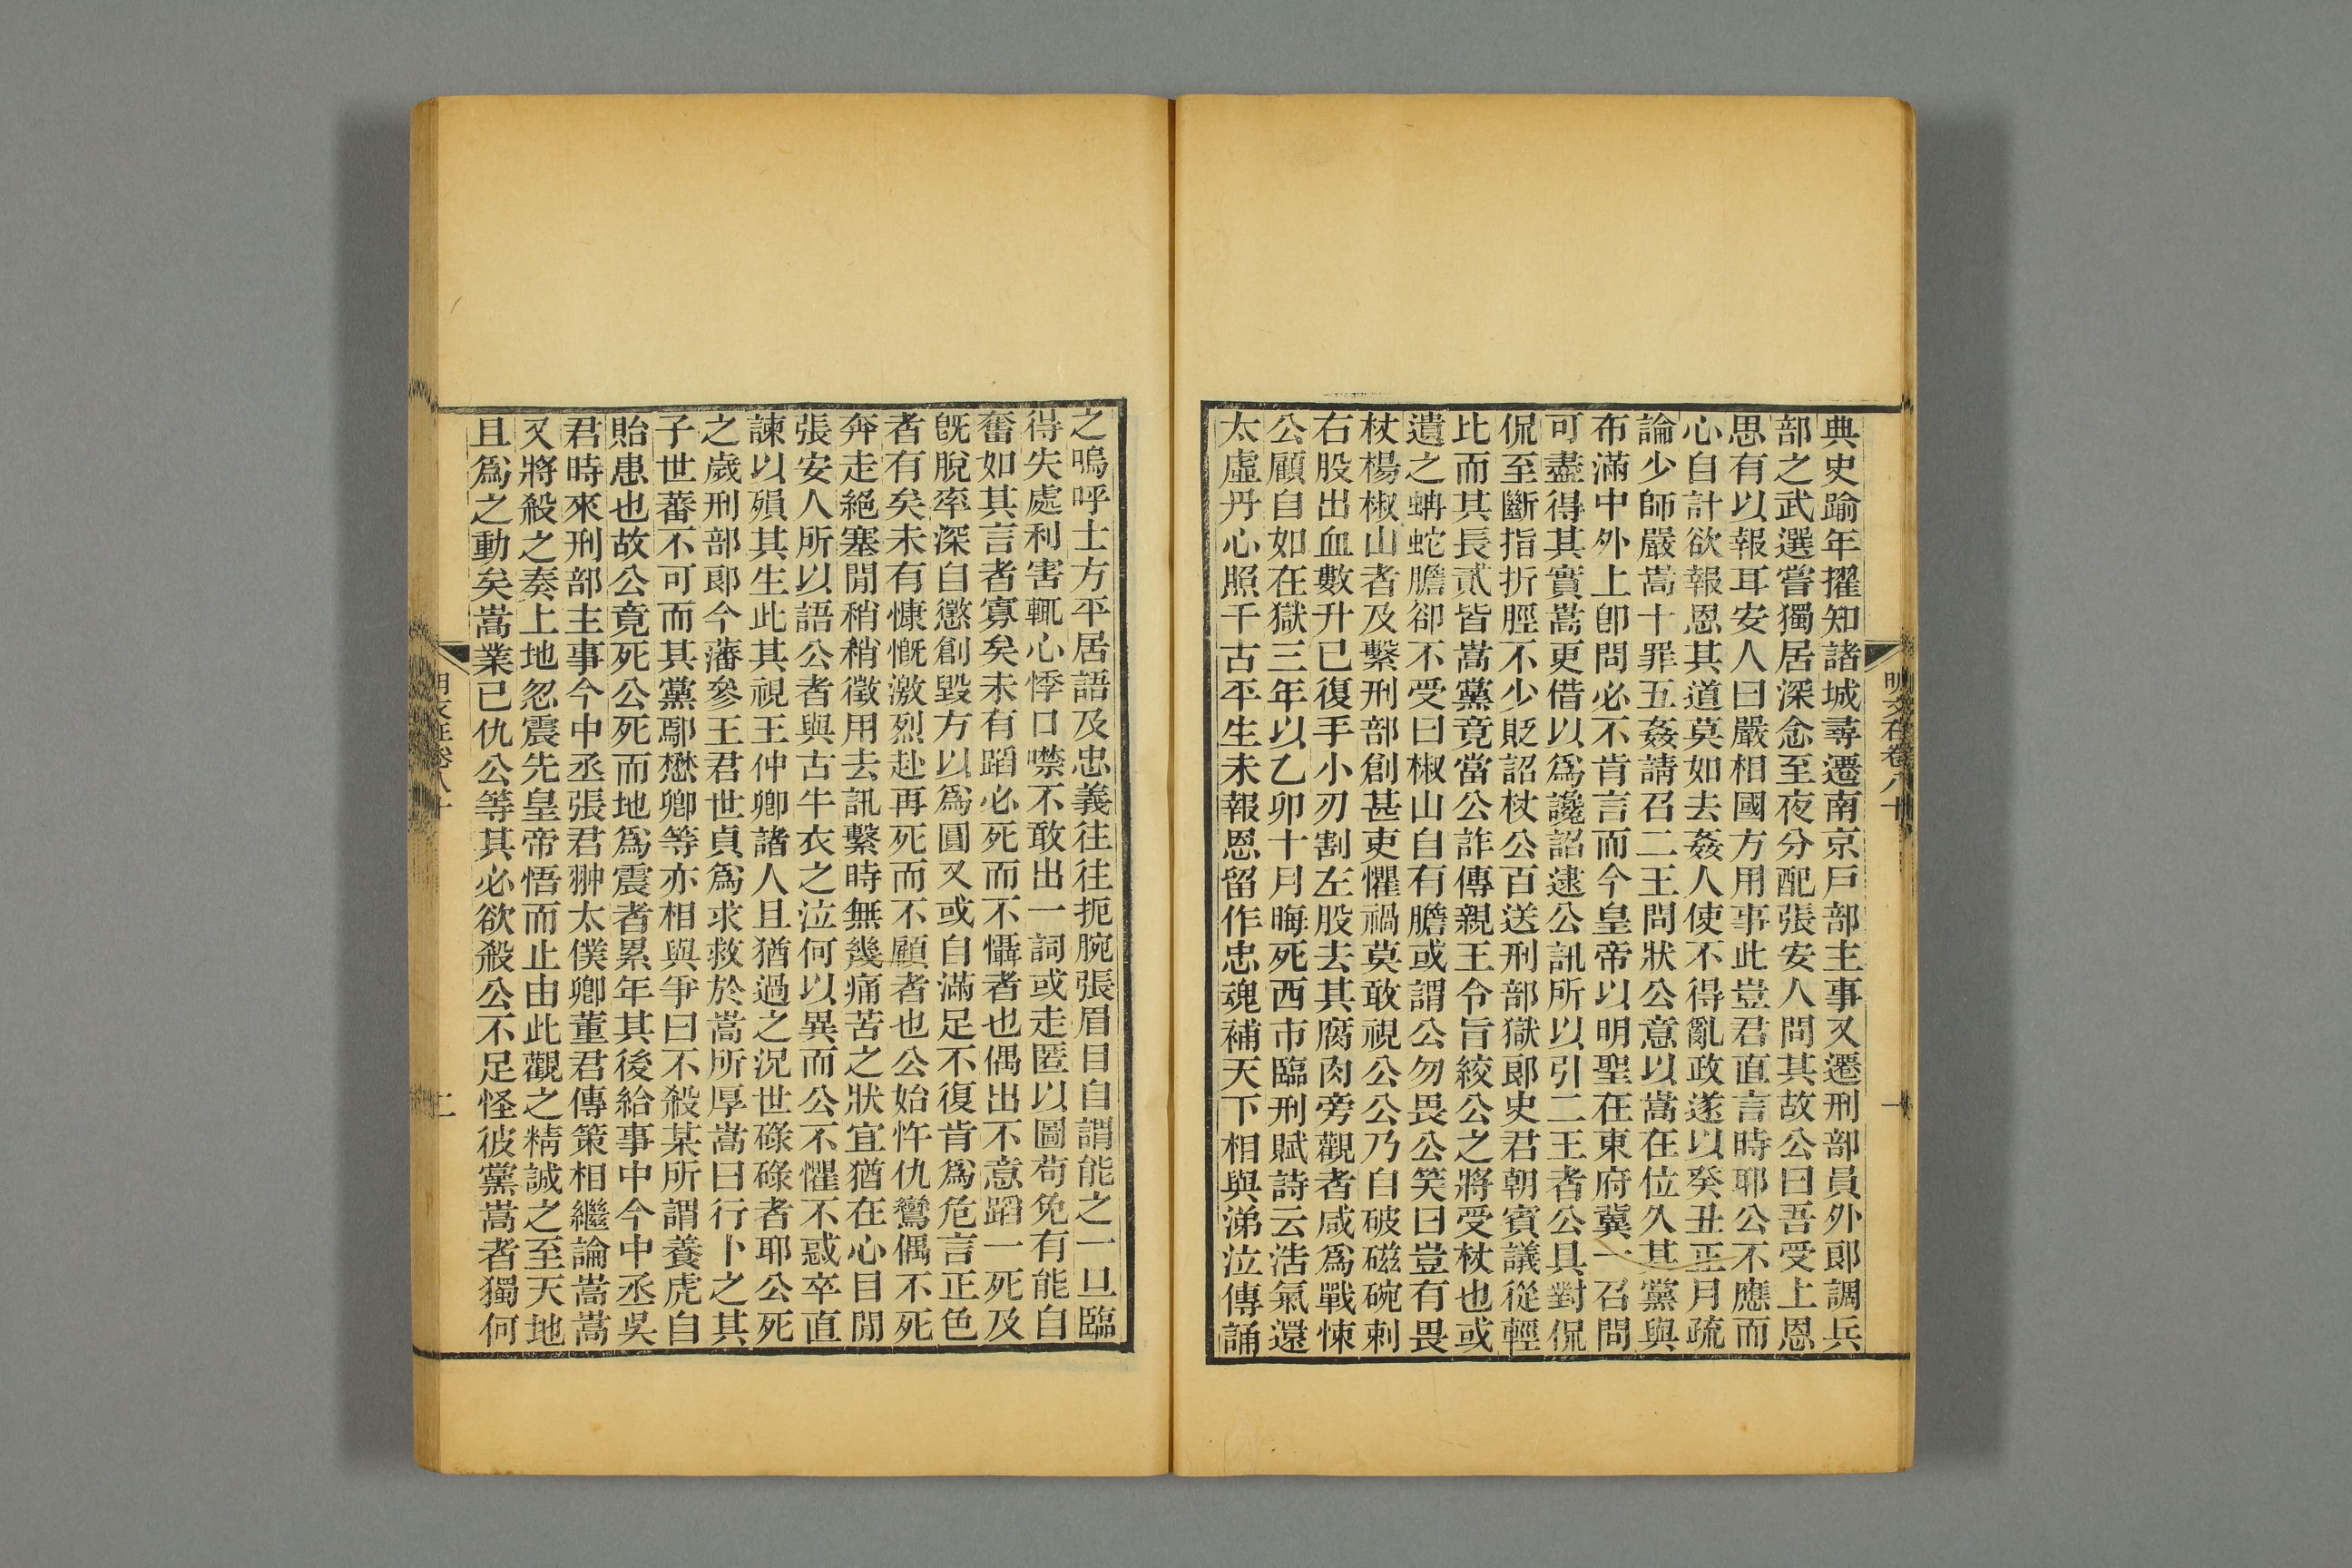 典史踰年擢知諸城尋遷南京戸部主事又遷刑部員外郎調兵
部之武選嘗獨居深念至夜分配張安人問其故公曰吾受上恩
思有以報耳安人曰嚴相國方用事此豈君直言時耶公不應而
心自計欲報恩其道莫如去姦人使不得亂政遂以癸丑正月疏
論少師嚴嵩十罪五姦請召二王問狀公意以嵩在位久其黨與
布滿中外上卽問必不肯言而今皇帝以明聖在東府冀一召問
可盡得其實嵩更借以爲讒詔逮公訊所以引二王者公具對侃
侃至斷指折脛不少貶詔杖公百送刑部獄郎史君朝賓議從輕
比而其長貳皆嵩黨竟當公詐傳親王令旨絞公之將受杖也或
遺之蚺蛇膽卻不受曰椒山自有膽或謂公勿畏公笑曰豈有畏
杖楊椒山者及繫刑部創甚吏懼禍莫敢視公公乃自破磁碗刺
右股出血數升已復手小刃割左股去其腐肉旁觀者咸爲戰悚
公顧自如在獄三年以乙卯十月晦死西市臨刑賦詩云浩氣還
太虛丹心照千古平生未報恩留作忠魂補天下相與涕泣傳誦
明文在卷八十
一
之嗚呼士方平居語及忠義往往扼腕張眉目自謂能之一旦臨
得失處利害輒心悸口噤不敢出一詞或走匿以圖苟免有能自
奮如其言者寡矣未有蹈必死而不懾者也偶出不意蹈一死及
旣脫率深自懲創毀方以爲圓又或自滿足不復肯爲危言正色
者有矣未有慷慨激烈赴再死而不顧者也公始忤仇鸞偶不死
奔走絕塞閒稍稍徵用去訊繫時無幾痛苦之狀宜猶在心目閒
張安人所以語公者與古牛衣之泣何以異而公不懼不惑卒直
諫以殞其生此其視王仲卿諸人且猶過之況世碌碌者耶公死
之歲刑部郎今藩參王君世貞爲求救於嵩所厚嵩曰行卜之其
子世蕃不可而其黨鄢懋卿等亦相與爭曰不殺某所謂養虎自
貽患也故公竟死公死而地爲震者累年其後給事中今中丞吳
君時來刑部主事今中丞張君翀太僕卿董君傳策相繼論嵩嵩
又將殺之奏上地忽震先皇帝悟而止由此觀之精誠之至天地
且爲之動矣嵩業已仇公等其必欲殺公不足怪彼黨嵩者獨何
明文在卷八十
二